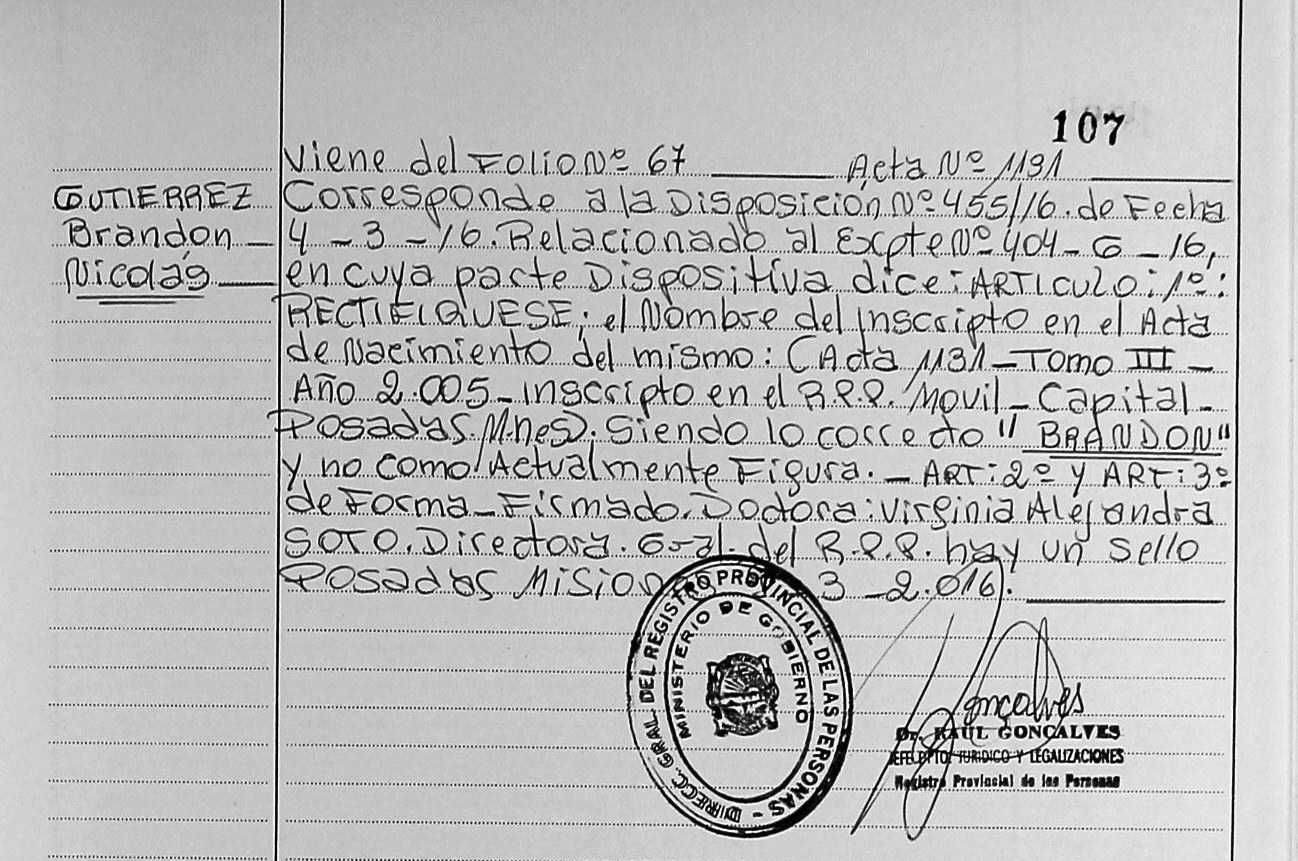 107
Viene del Folio Nº 67 Acta Nº 1131
GUTIERREZ
Brandon
Nicolás
Corresponde a la Disposición Nº 455/16. de Fecha
4-3-16. Relacionado al Expte Nº 404-G-16,
en cuya parte Dispositiva dice: ARTICULO: 1º:
RECTIFIQUESE; el Nombre del inscripto en el Acta
de Nacimiento del mismo: (Acta 1131 - Tomo III -
Año 2.005 - inscripto en el R.P.P. Movil - Capital -
Posadas. Mnes). Siendo lo correcto "BRANDON"
y no como Actualmente Figura. - ART: 2º y ART: 3º
de Forma - Firmado. Doctora: Virginia Alejandra
SOTO. Directora. Gral. del R.P.P. hay un sello
Posadas Mision 3 - 2.016.
DIRECC. GRAL. DEL REGISTRO PROVINCIAL DE LAS PERSONAS -
MINISTERIO DE GOBIERNO
Gonçalves
Dr. RAUL GONCALVES
JEFE DPTO. JURIDICO Y LEGALIZACIONES
Registro Provincial de las Personas